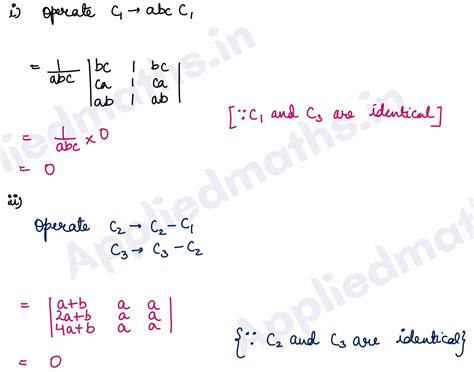 i) Operate C₁ → abc C₁
= 1/abc | bc 1 bc |
| ca 1 ca |
| ab 1 ab |
[∵ C₁ and C₃ are identical]
= 1/abc × 0
= 0
ii)
Operate C₂ → C₂ – C₁
C₃ → C₃ – C₂
= | a+b a a |
| 2a+b a a |
| 4a+b a a |
{∵ C₂ and C₃ are identical}
= 0
Appliedmaths.in
Appliedmaths.in